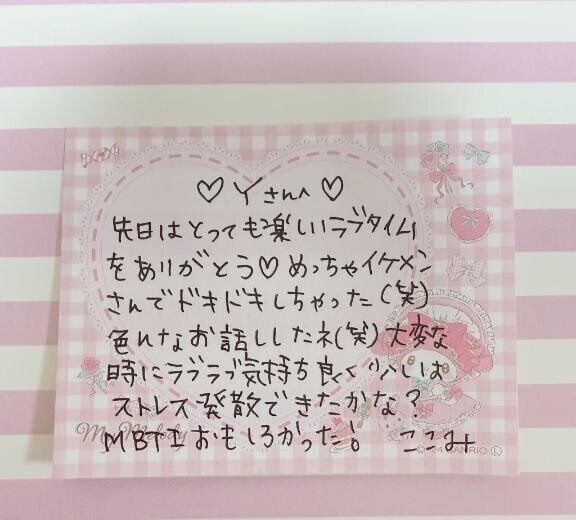 ♡ Yさんへ ♡
先日はとっても楽しいラブタイム
をありがとう♡めっちゃイケメン
さんでドキドキしちゃった(笑)
色んなお話ししたネ(笑)大変な
時にラブラブ気持ち良く少しは
ストレス発散できたかな?
My Melody
MBTIおもしろかった! ここみ
©'24 SANRIO Ⓛ